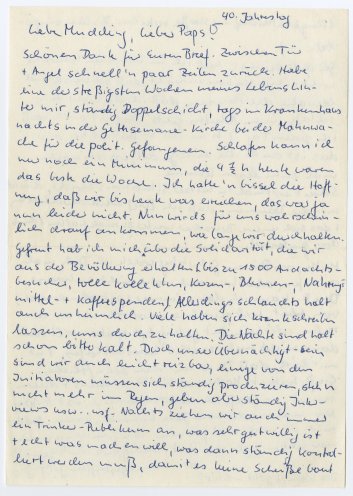 40. Jahrestag
Liebe Mudding, lieber Paps!
Schönen Dank für Euren Brief. Zwischen Tür
+ Angel schnell 'n paar Zeilen zurück. Habe
eine der streßigsten Wochen meines Lebens hin-
ter mir, ständig Doppelschicht, tags im Krankenhaus
nachts in der Gethsemane-Kirche bei der Mahnwa-
che für die polit. Gefangenen. Schlafen kann ich
nur noch ein Minimum, die 4 ½ h heute waren
das beste die Woche. Ich hatte 'n bissel die Hoff-
nung, daß wir bis heute was erreichen, das war ja
nun leider nicht. Nun wird's für uns wahrschein-
lich drauf ankommen, wie lange wir durchhalten.
Gefreut hab ich mich über die Solidarität, die wir
aus der Bevölkerung erhalten (bis zu 1500 Andachts-
besucher, tolle Kollekten, Kerzen-, Blumen-, Nahrungs-
mittel- + Kaffeespenden) Allerdings schlaucht's halt
auch unheimlich. Viele haben sich krankschreiben
lassen, um's durchzuhalten. Die Nächte sind halt
schon bitter kalt. Durch unser Übernächtigt-sein
sind wir auch leicht reizbar, einige von den
Initiatoren müssen sich ständig produzieren, stehn
nicht mehr im Regen, geben aber ständig Inter-
views usw. usf. Nachts ziehen wir auch immer
ein Trinker-Publikum an, was sehr gutwillig ist
+ echt was machen will, was dann ständig kontrol-
liert werden muß, damit es keine Scheiße baut